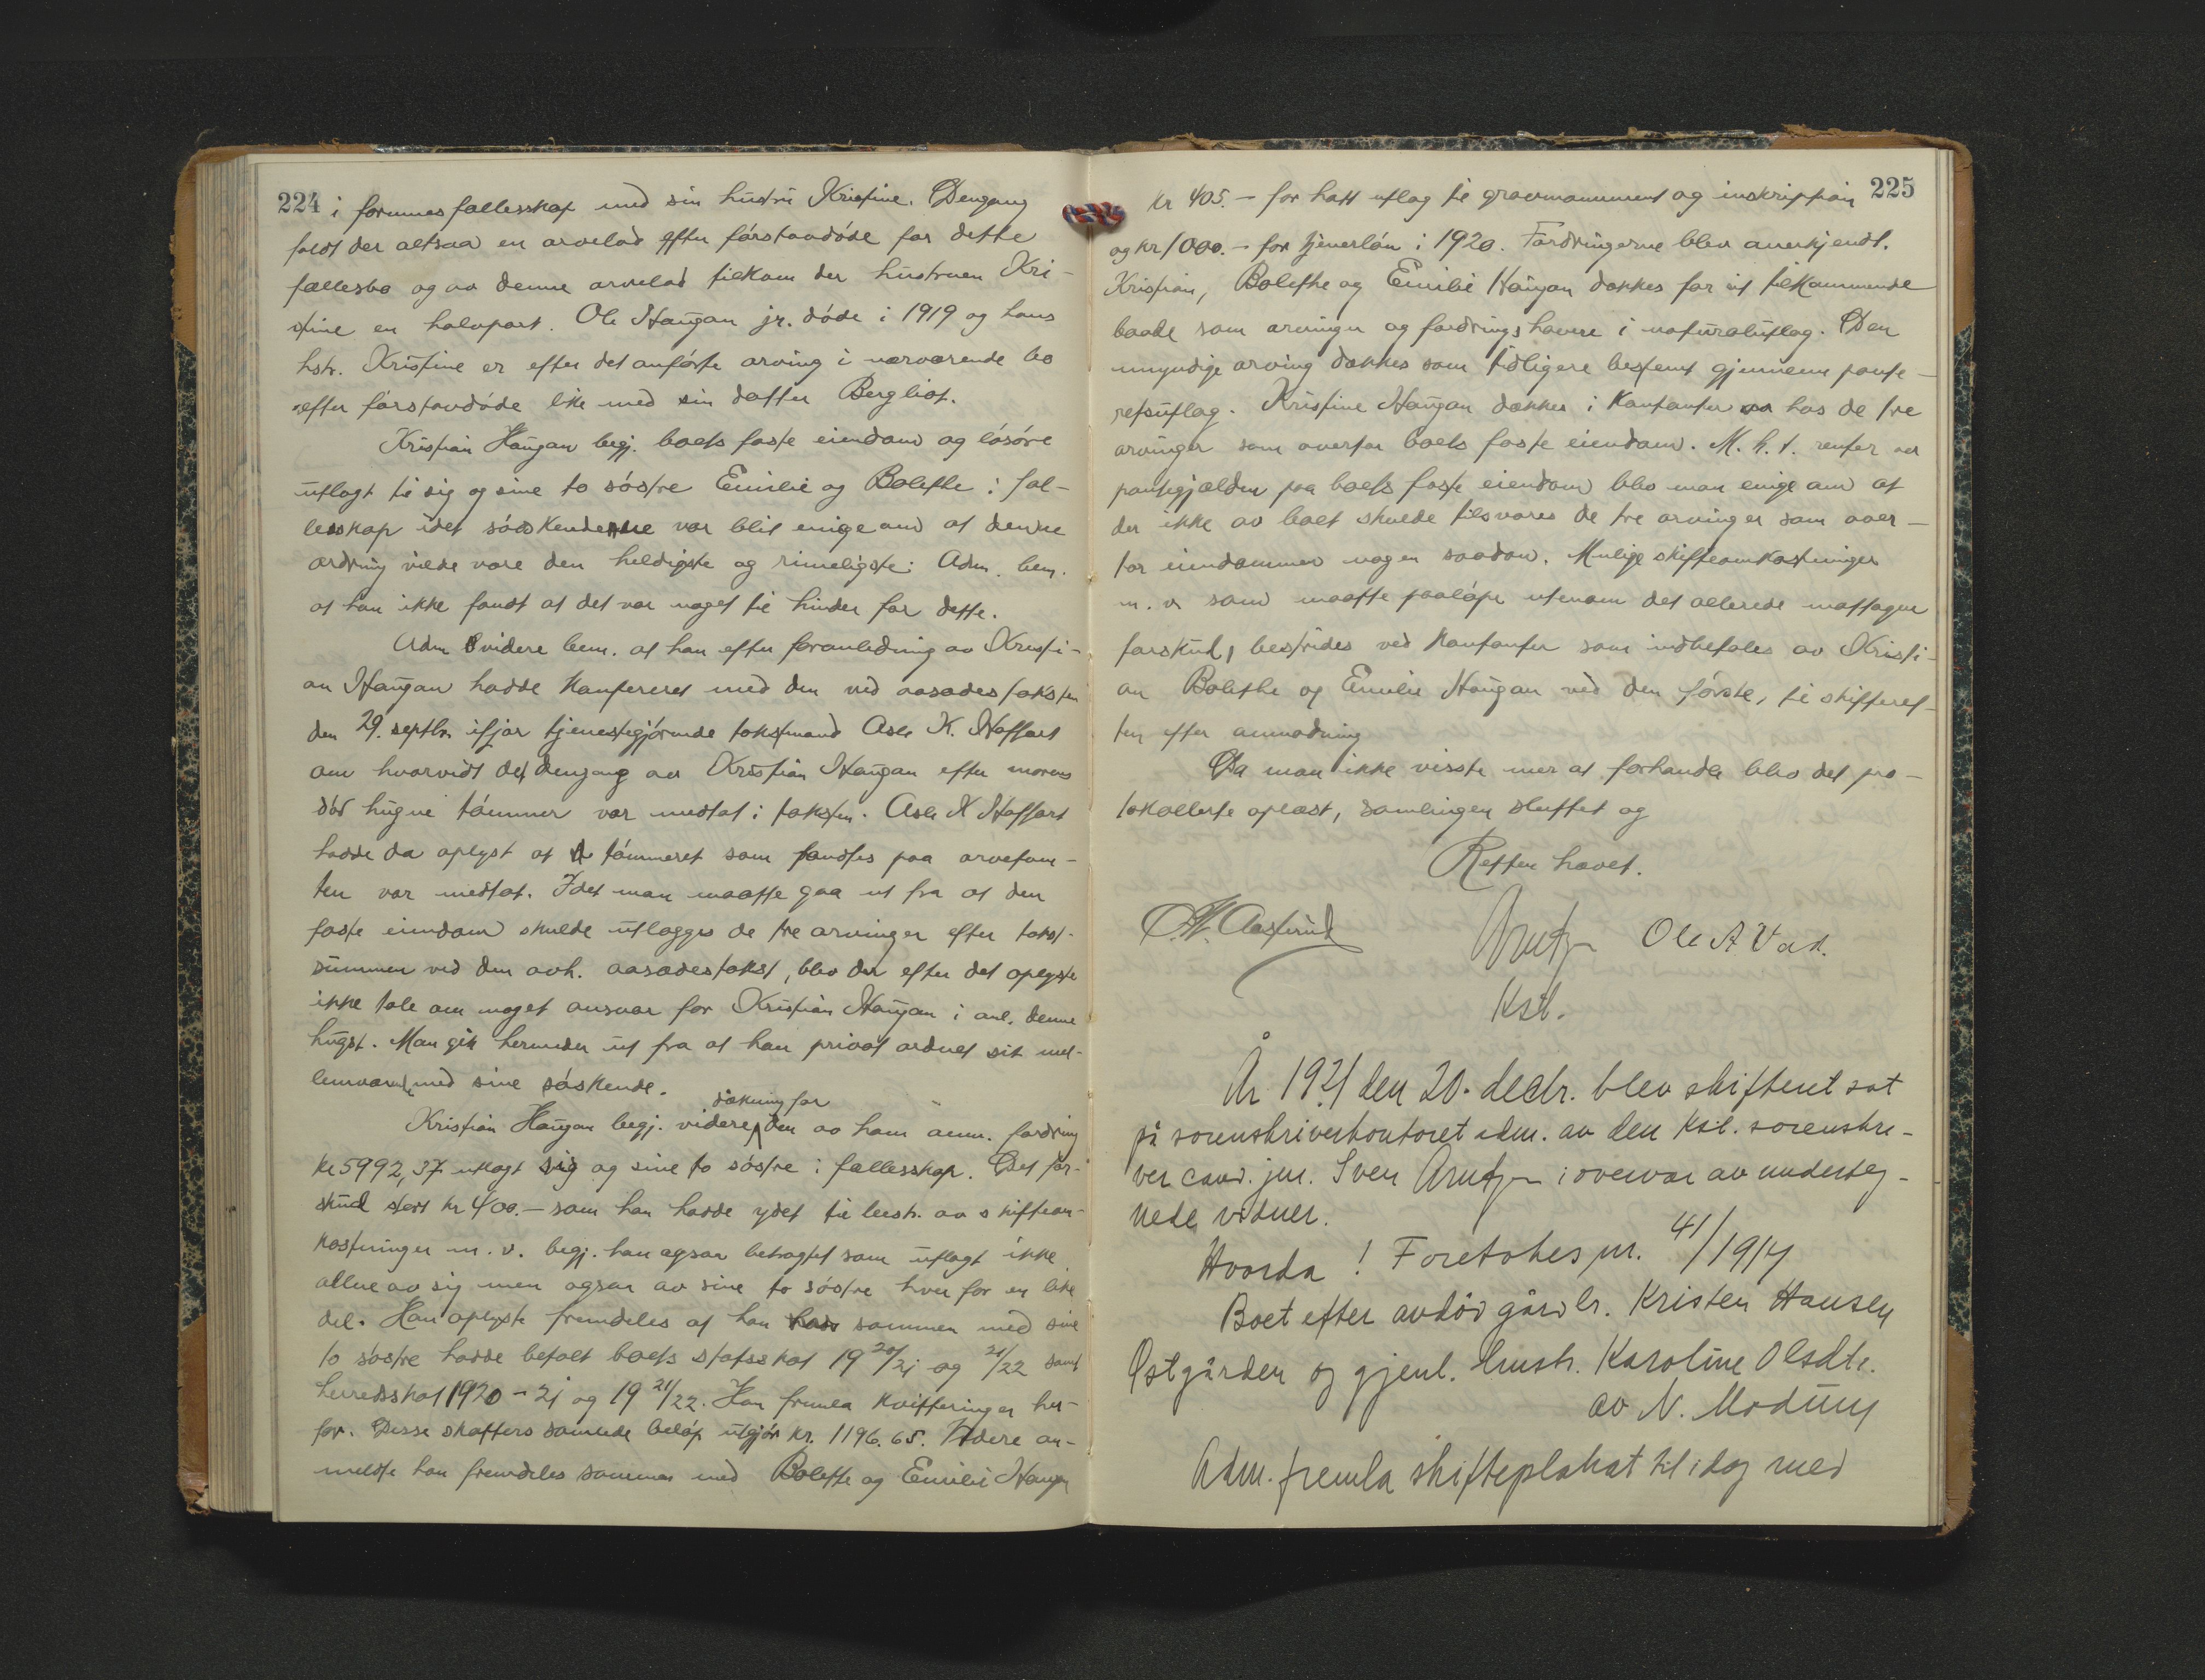 224 i formuesfællesskap med sin hustru Kristine. Dengang
faldt der altsaa en arvelod efter førstavdøde for dette
fællesbo og av denne arvelod tilkom der hustruen Kri-
stine en halvpart. Ole Haugan jr. døde i 1919 og hans
hstr. Kristine er efter det anførte arving i nærværende bo
efter førstavdøde like med sin datter Bergliot.
Kristian Haugan begj. boets faste eiendom og løsøre
utlagt til sig og sine to søstre Emilie og Bolette i fæl-
lesskap idet søskenderne var blit enige om at denne
ordning vilde være den heldigste og rimeligste. Adm. bem.
at han ikke fandt at det var noget til hinder for dette.
Adm videre bem. at han efter foranledning av Kristi-
an Haugan hadde konfereret med den ved aasædestaksten
den 29. septbr. ifjor tjenestegjørende takstmand Asle K. Haffart
om hvorvidt det dengang av Kristian Haugan efter morens
død hugne tømmer var medtat i taksten. Asle K Haffart
hadde da oplyst at tømmeret som fandtes paa arvetom-
ten var medtat. Idet man maatte gaa ut fra at den
faste eiendom skulde utlægges de tre arvinger efter takst-
summen ved den avh. aasædestakst, blev der efter det oplyste
ikke tale om noget ansvar for Kristian Haugan i anl. denne
hugst. Man gik herunder ut fra at han privat ordnet sit mel-
lemværende med sine søskende.
dækning for
Kristian Haugan begj. videre den av ham anm. fordring
kr 5992,37 utlagt sig og sine to søstre i fællesskap. Det for-
skud stort kr 400.- som han hadde ydet til bestr. av skifteom-
kostninger m. v. begj. han ogsaa betragtet som utlagt ikke
alene av sig men ogsaa av sine to søstre hver for en like
del. Han oplyste fremdeles at han sammen med sine
to søstre hadde betalt boets statsskat 19 20/21 og 21/22 samt
herredsskat 1920-21 og 19 21/22. Han fremla kvitteringer her-
for. Disse skatters samlede beløp utgjør kr. 1196.65. Videre an-
meldte han fremdeles sammen med Bolette og Emilie Haugan
225
kr 405.- for hatt utlæg til gravmonument og inskription
og kr 1000.- for tjenerløn i 1920. Fordringerne blev anerkjendt.
Kristian, Bolette og Emilie Haugan dækkes for sit tilkommende
baade som arvinger og fordringshavere i naturalutlæg. Den
umyndige arving dækkes som tidligere bestemt gjennem pante-
retsutlæg. Kristine Haugan dækkes i kontanter hos de tre
arvinger som overtar boets faste eiendom. M. h. t. renter av
pantegjælden paa boets faste eiendom blev man enige om at
der ikke av boet skulde tilsvares de tre arvinger som over-
tar eiendommen nogen saadan. Mulige skifteomkostninger
m. v. som maatte paaløpe utenom det allerede mottagne
forskud, bestrides ved kontanter som indbetales av Kristi-
an Bolette og Emilie Haugan ved den første, til skifteret-
ten efter anmodning
Da man ikke visste mer at forhandle blev det pro-
tokollerte oplæst, samlingen sluttet og
Retten hævet.
Aasterud
Arntzen Ole A Vad.
Kst.
År 1921 den 20. decbr. blev skifteret sat
på sorenskriverkontoret adm. av den kst. sorenskri-
ver cand. jur. Sven Arntzen i overvær av underteg-
nede vidner.
Hvorda! Foretokes nr. 41/1917
Boet efter avdød gårdbr. Kristen Hansen
Østgården og gjenl. hustr. Karoline Olsdtr.
av N. Modum
Adm. fremla skifteplakat til idag med